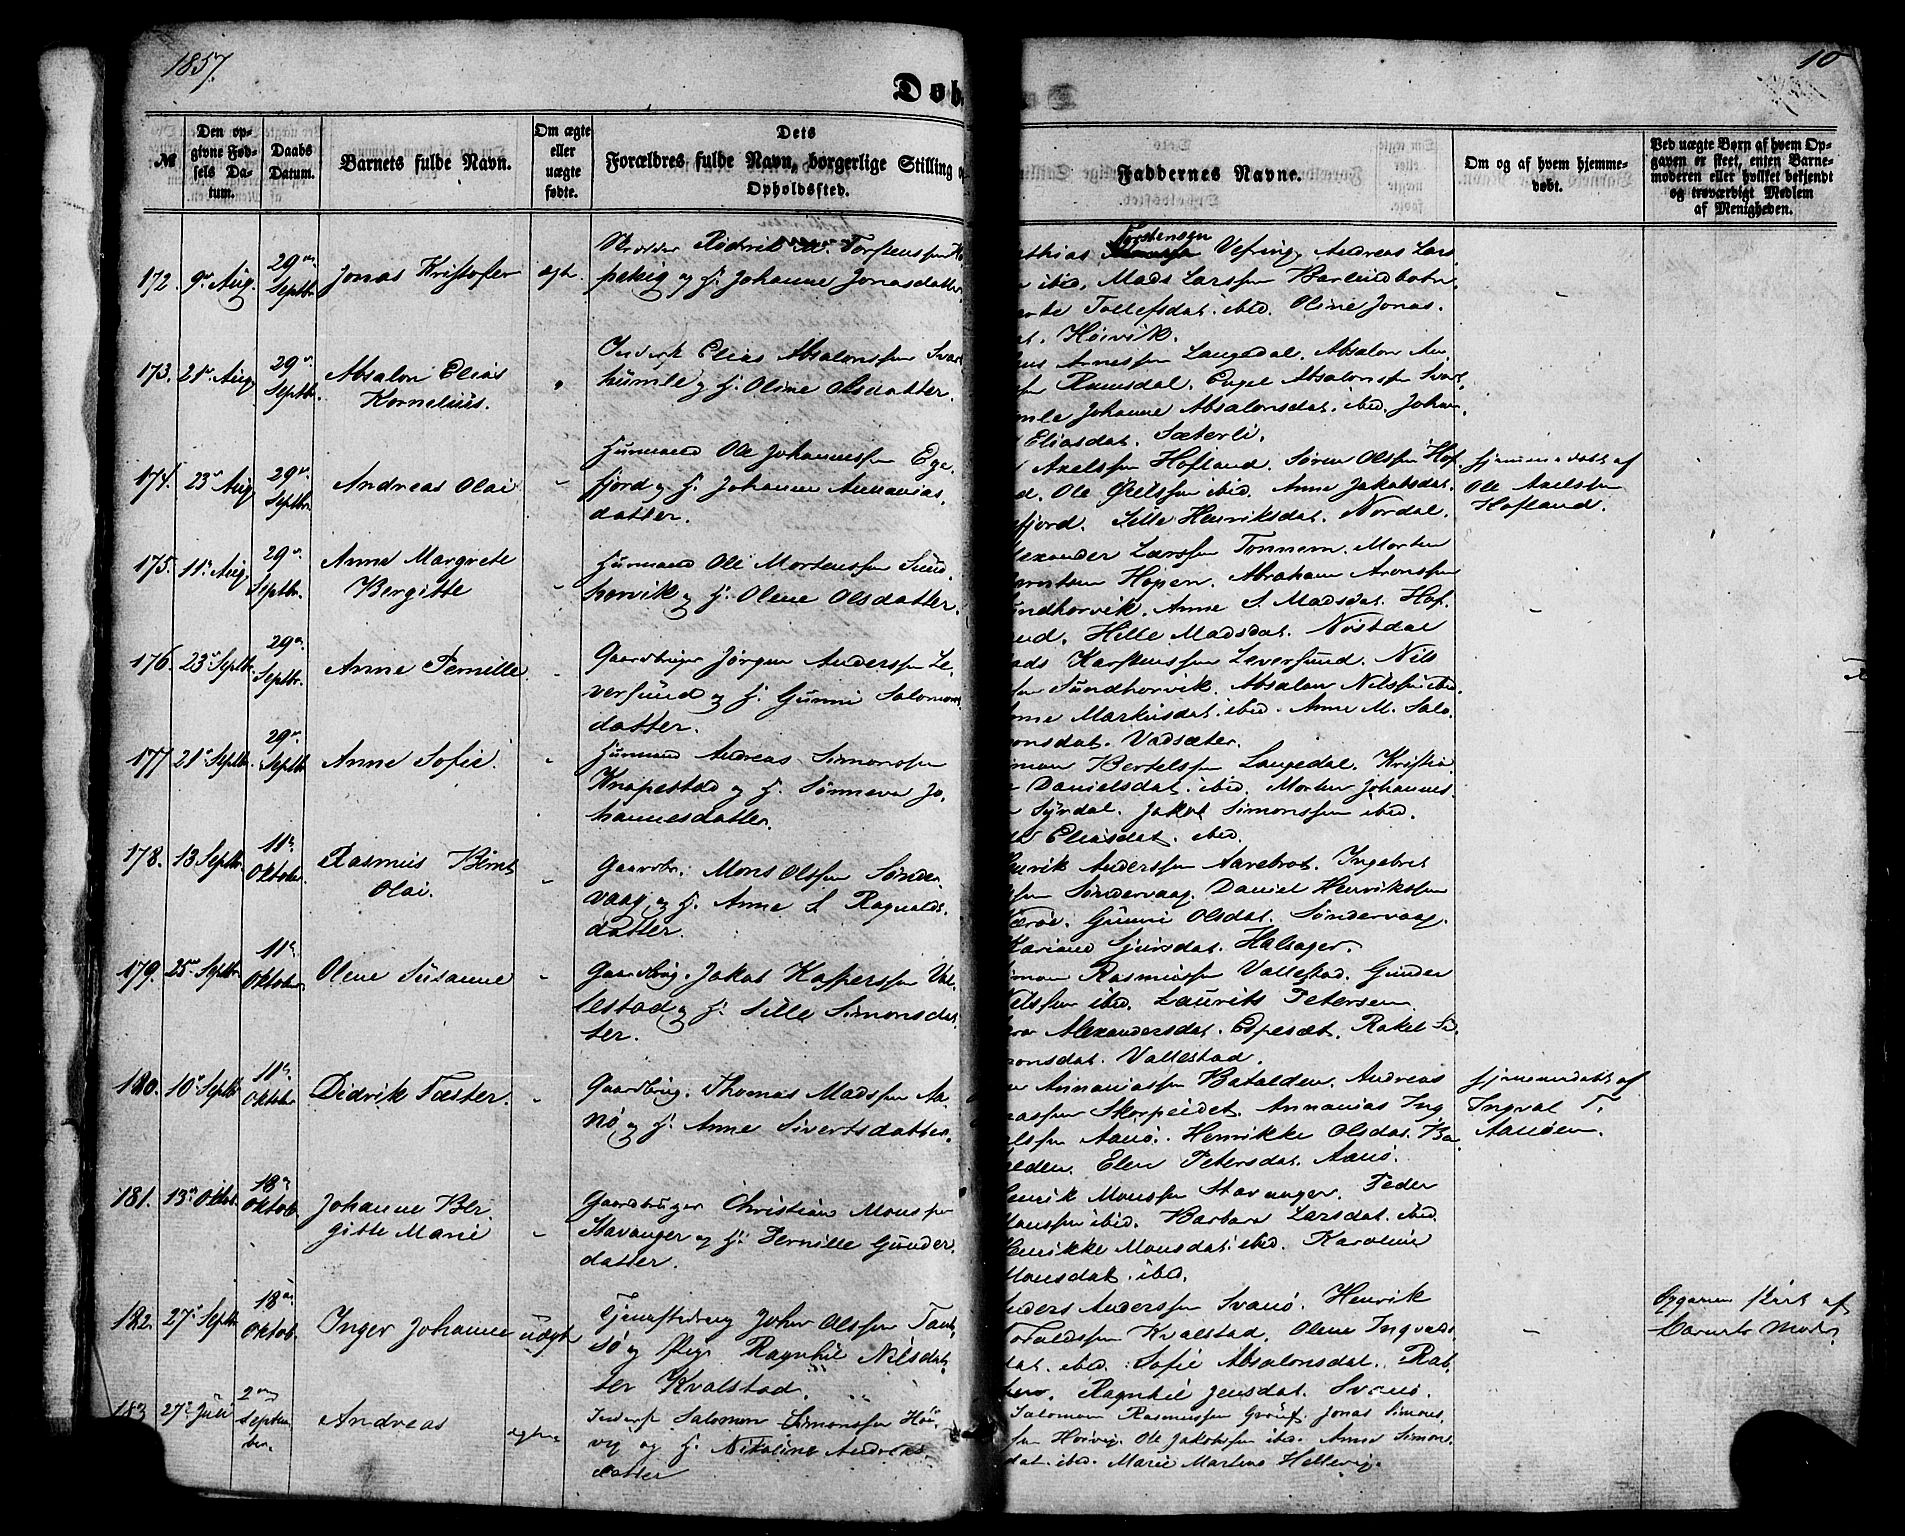 1857.
Døb
10
№
Den op-
givne Fød-
sels Da-
tum.
Daabs
Datum.
Barnets fulde Navn.
Om ægte
eller
uægte
fødte.
Dets
Forældres fulde Navn, borgerlige Stilling o
Opholdssted.
Faddernes Navne.
Om og af hvem hjemme-
døbt.
Ved uægte Børn af hvem Op-
gaven er skeet, enten Barne-
moderen eller hvilket bekjendt
og troværdigt Medlem
af Menigheden.
172. 9de Aug. 29de Septbr. Jonas Kristofer ægt.
Torfinssen
pekig og H. Johanne Jonasdatter.
Torstensen
thias Vefring, Andreas Lars
n ibid. Mads Larssen Barlindbotn
Tollefsdat. ibid. Oline Jonas.
t. Høivik.
173. 21de Aug. 29de Septbr. Absalon Elias
Kornelius.
Inderst Elias Absalonssen Svart
humle og H. Oline Olsdatter.
us Arnessen Langedal. Absalon An.
sen Ramsdal. Engel Absalonssen Svart.
mle Johanne Absalonsdat. ibid. Johan.
Eliasdat. Sæterli.
174. 23de Aug. 29de Septbr. Andreas Olai
Husmand Ole Johannessen Ege.
fjord og H. Johanne Ananias.
datter.
Axelssen Hofland. Søren Olssen Hof.
d. Ole Axelssen ibid. Anne Jakobsdat.
efjord. Sille Henriksdat. Nordal.
Hjemmedøbt af
Ole Axelssen
Hofland.
175. 11te Aug. 29de Septbr. Anne Margrete
Bergitte
Husmand Ole Mortenssen Sund
horvik og H. Olene Olsdatter.
lexander Larssen Tonnem. Morten
Hopen. Abraham Aronssen
undhorvik. Anne S. Madsdat. Hof.
und. Hille Madsdat. Nøstdal
176. 23de Septbr. 29de Septbr. Anne Pernille.
Gaardbruger Jørgen Anderssen Le.
versund og H. Gunni Salomons
datter.
ads Karstenssen Leversund. Nils
sen Sundhorvik. Absalon Nilssen ibid.
Markusdat. ibid. Anne M. Salo.
onsdat. Vadsæter.
177. 21de Septbr. 29de Septbr. Anne Sofie.
Husmand Andreas Simonssen
Knapestad og H. Sønneva Jo.
hannesdatter.
mon Bertelssen Langedal. Kristia
Danielsdat. ibid. Morten Johannes.
Syrdal. Jakob Simonssen ibid.
Eliasdat. ibid.
178. 13 Septbr. 11te Oktober Rasmus Bernt
Olai.
Gaardbr. Mons Olssen Sønder
vaag og H. Anne S. Ragnalds.
datter.
enrik Anderssen Aarebrot. Ingebret
ssen Søndervaag. Daniel Henrikssen
Værøe. Gunni Olsdat. Søndervaag.
Kariane Sjursdat. Halsager.
179. 25de Septbr. 11te Oktober Olene Susanne
Gaardbrug. Jakob Kasperssen Val.
lestad og H. Sille Simonsdat.
ter.
imon Rasmussen Vallestad. Gunder
Nilssen ibid. Laurits Petersen
Alexandersdat. Espesæt. Rakel Si.
monsdat. Vallestad.
180. 10de Septbr 11te Oktober Didrik Fæster.
Gaardbrug. Thomas Madssen Aa.
nø og H. Anne Sivertsdatter.
Annaniassen Batalden. Andreas
aassen Skorpeidet. Annanias Ing
elssen Aanø. Henrikke Olsdat. Ba.
alden. Elen Petersdat. Aanø.
Hjemmedøbt af
Ingval T.
Aanøen.
181. 13de Oktob. 18de Oktob. Johanne Ber
gitte Marie
Gaardbruger Christian Monssen
Stavanger og H. Pernille Gunder.
datter.
Henrik Monssen Stavanger. Peder
Monssen ibid. Barbara Larsdat. ibid
Henrikke Monsdat. ibid. Karoline
Monsdat. ibid.
182. 27de Septbr 18de Oktob. Inger Johanne uægt
Tjenestedreng Johan Olssen Tans
sø og Pige Ragnhil Nilsdat.
ter Kvalstad.
Anders Anderssen Svanø. Henrik
Kvalstad, Olene Ingvalds.
dat. ibid. Sofie Absalonsdat.
Ragnhil Jensdat. Svanø.
Opgaven skeet af
Barnets Moder
183 27de Juli 2den Septem
ber. Andreas ægte
Inderst Salomon Simonssen Høi
vig og H. Nikoline Andreas
datter
Salomon Rasmussen Grøuf. Jonas Simons.
sen Høivig. Ole Jakobssen ibid. Anne Simons
dat. ibid. Marie Martens Hellevig.